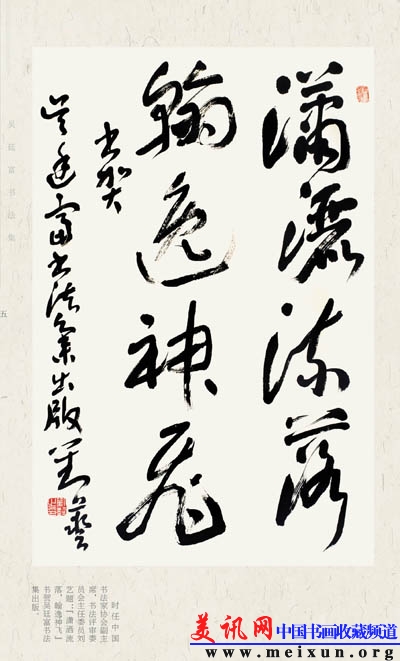 瀟灑流落
翰逸神飛
书贺
吴廷富书法集出版 刘藝
吴廷富书法集
五
时任中国
书法家协会副主
席，书法评审委
员会主任委员刘
艺题：“潇洒流
落，翰逸神飞”
书贺吴廷富书法
集出版。
美讯网 中国书画收藏频道
www.meixun.org